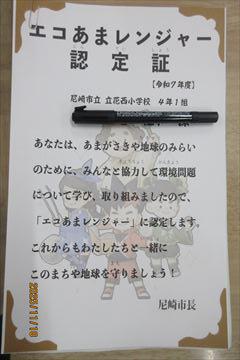 エコあまレンジャー
認定証
【令和7年度】
尼崎市立 立花西小学校 4年1組
あなたは、あまがさきや地球のみらい
のために、みんなと協力して環境問題
について学び、取り組みましたので、
「エコあまレンジャー」に認定します。
これからもわたしたちと一緒に
このまちや地球を守りましょう!
尼崎市長
2025/11/10